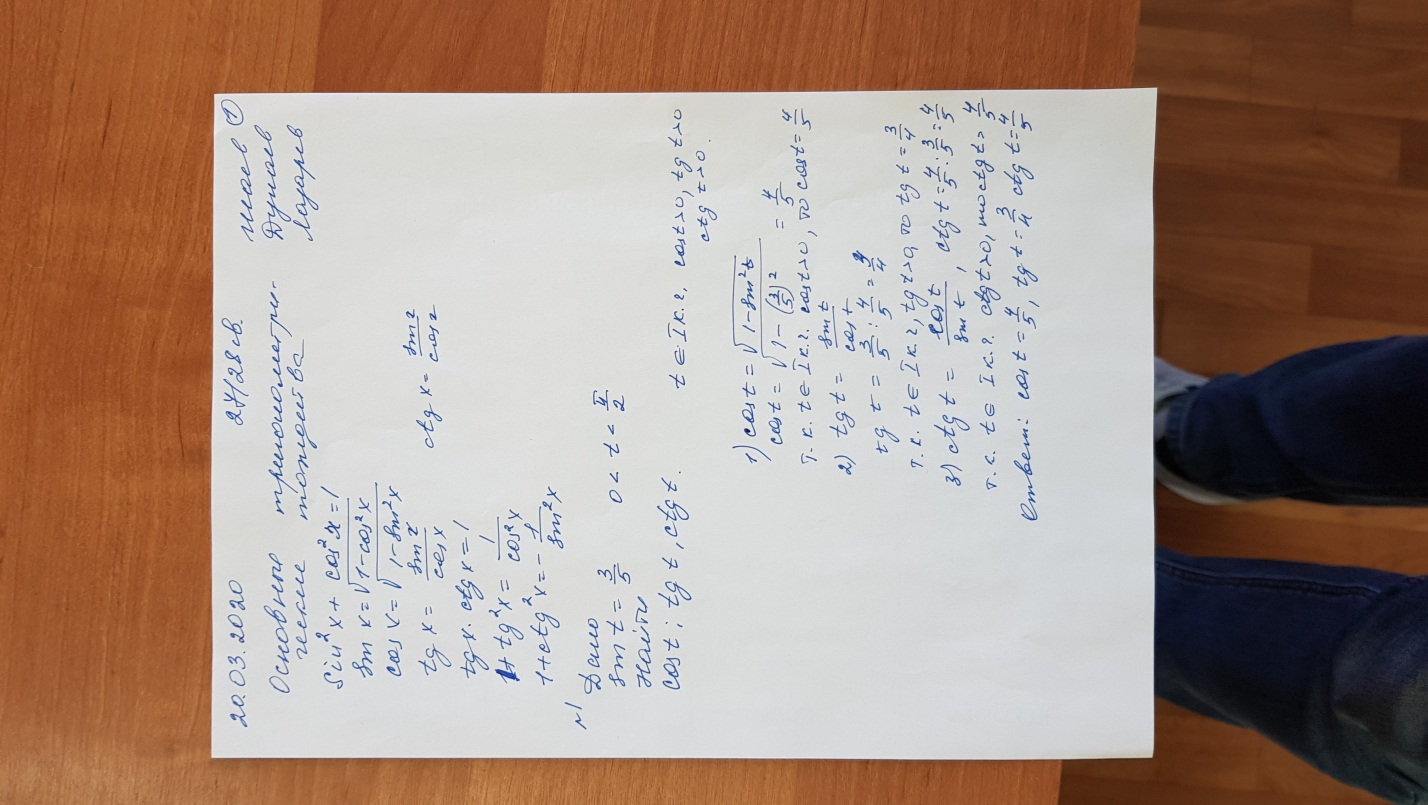 20.03.2020 27/28 св. ①
Основные тригонометри-
ческие тождества
Дунаев
Лазарев
Sin²x + cos²x = 1
sin x = √(1-cos²x)
cos x = √(1-sin²x)
tg x = sin x / cos x ctg x = sin x / cos x
tg x · ctg x = 1
1 + tg²x = 1 / cos²x
1 + ctg²x = - 1 / sin²x
№1 Дано
sin t = 3/5 0 < t < π/2
Найти
cos t ; tg t , ctg t. t ∈ I к.г. cos t > 0, tg t > 0
ctg t > 0.
1) cos t = √(1 - sin²t)
cos t = √(1 - (3/5)²) = 4/5
Т.к. t ∈ I к.г. cos t > 0, то cos t = 4/5
2) tg t = sin t / cos t
tg t = 3/5 : 4/5 = 3/4
т.к. t ∈ I к.г, tg t > 0, то tg t = 3/4
3) ctg t = cos t / sin t , ctg t = 4/5 : 3/5 = 4/5
т.к. t ∈ I к.г. ctg t > 0, то ctg t = 4/5
Ответ: cos t = 4/5, tg t = 3/4 ctg t = 4/5